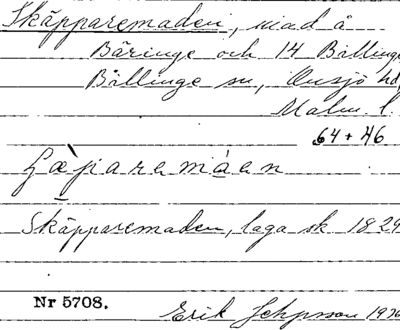 Skäpparemaden, mad å
Bäringe och 14 Billinge
Billinge sn, Onsjö hd,
Malm. l.
64 + 46
Skäpparemaden, laga sk 1829
Nr 5708.
Erik 1936